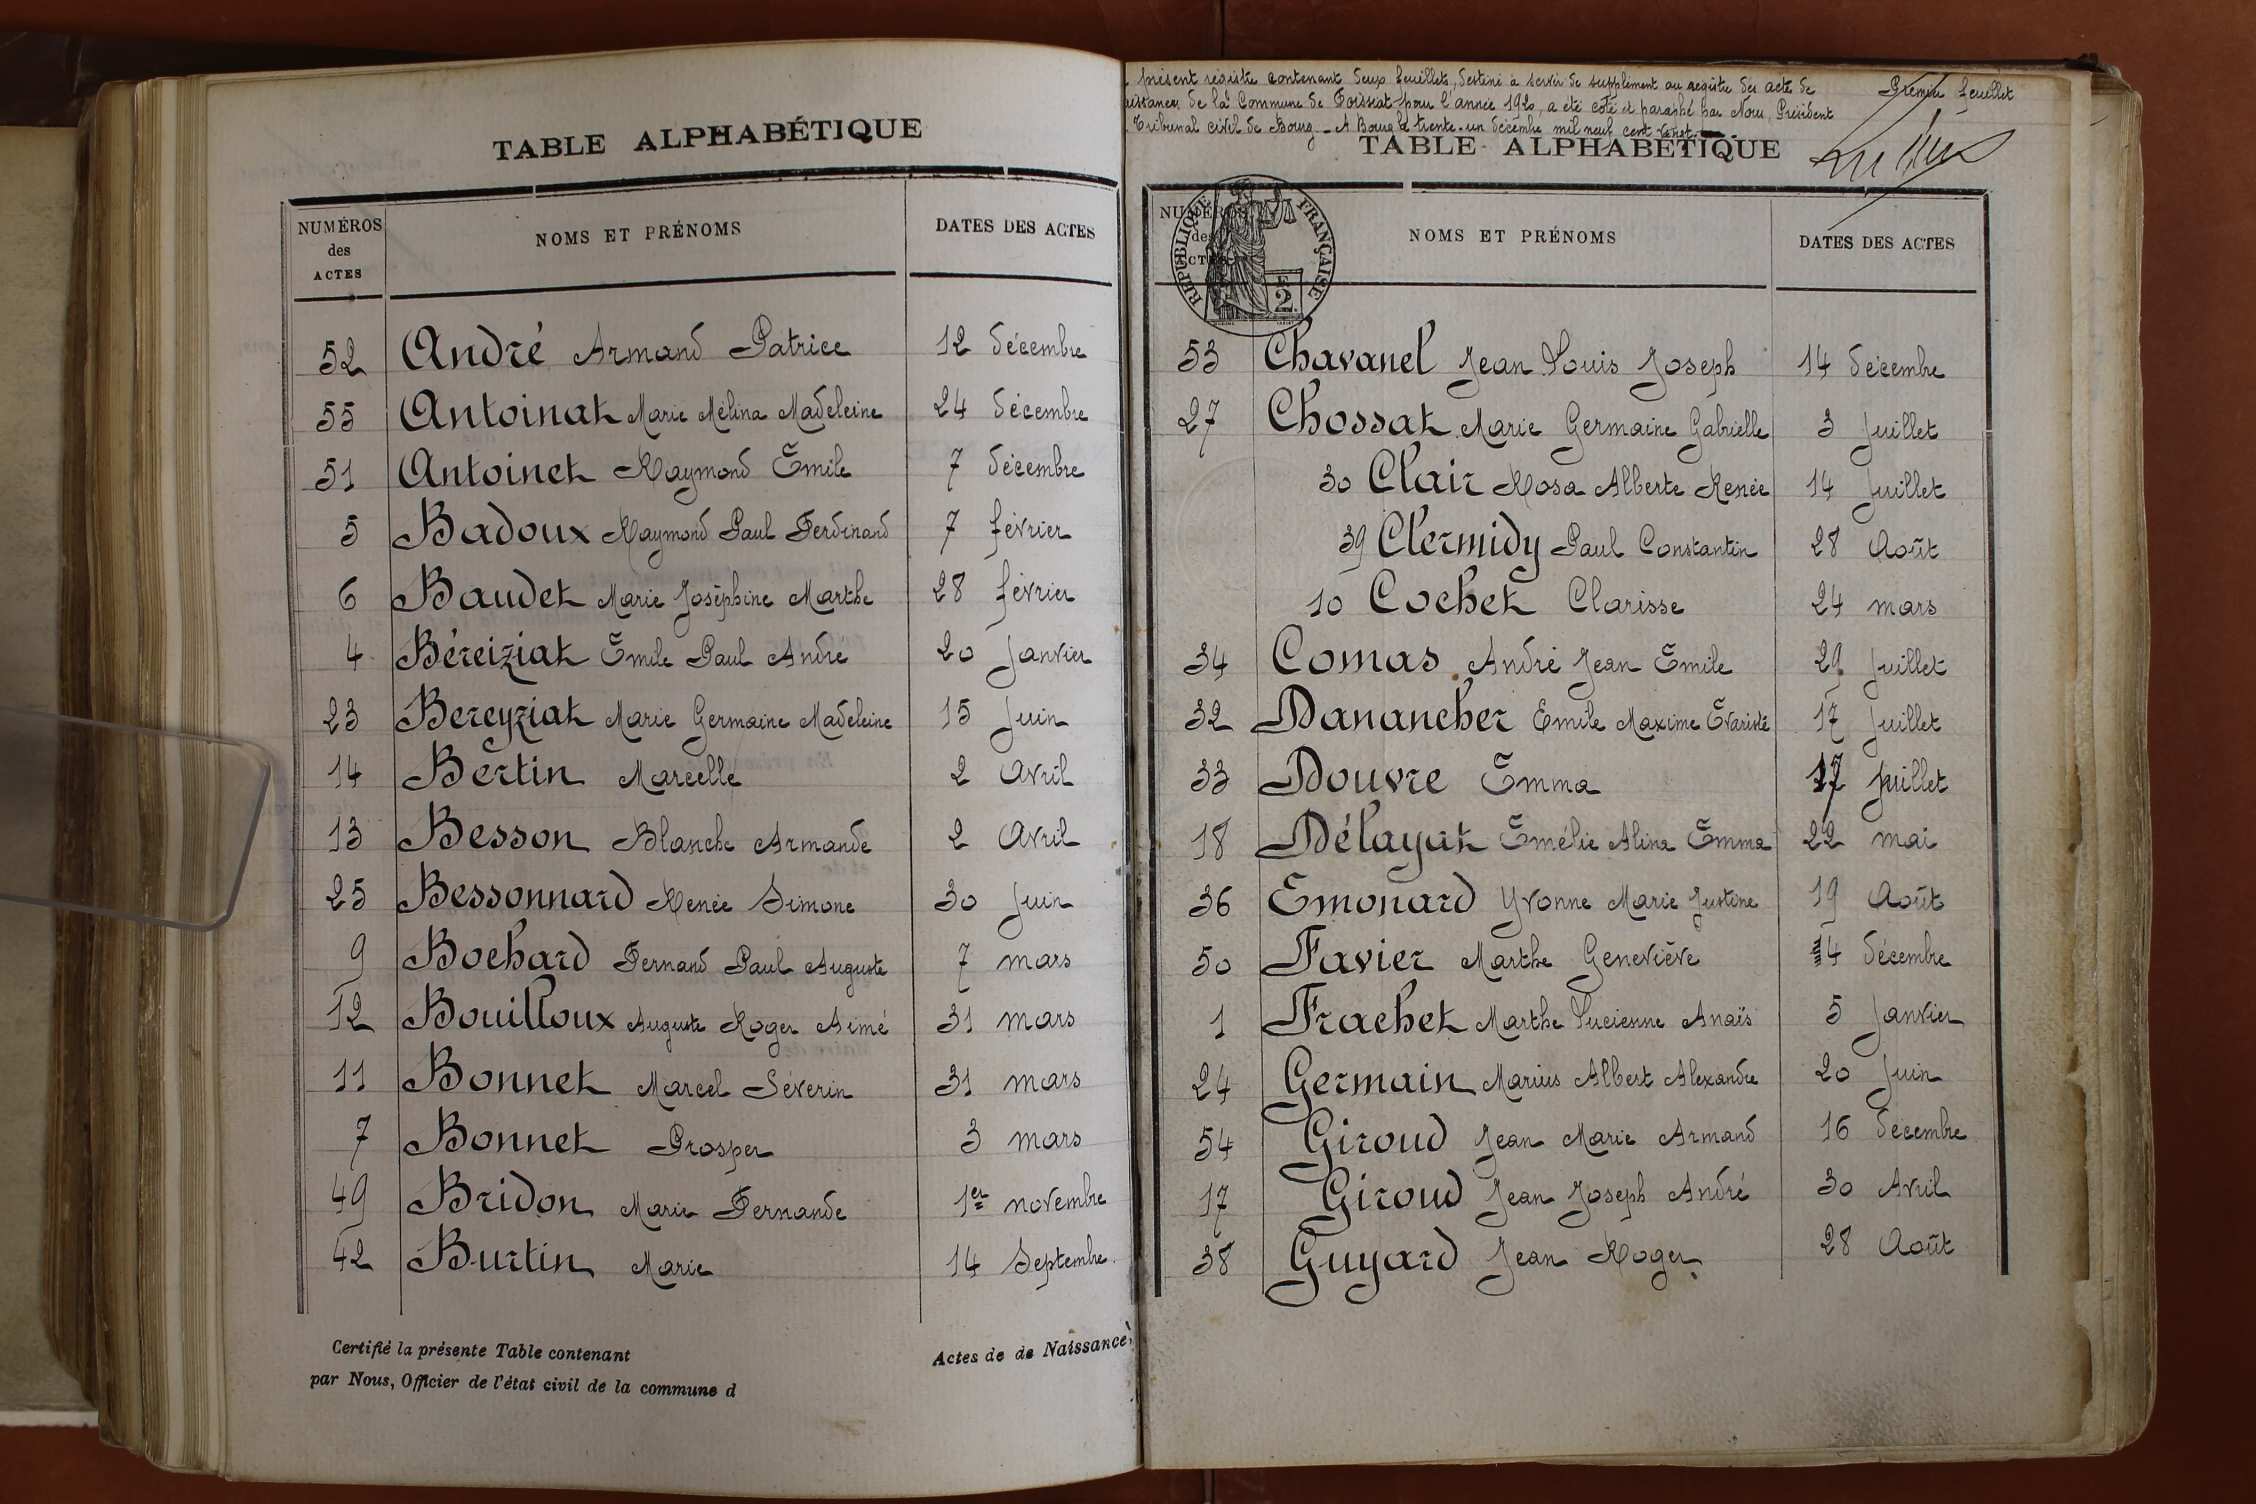 TABLE ALPHABÉTIQUE
NUMÉROS des ACTES
NOMS ET PRÉNOMS
DATES DES ACTES
52 André Armand Patrice 12 décembre
55 Antoinat Marie Mélina Madeleine 24 décembre
51 Antoinet Raymond Emile 7 décembre
5 Badoux Raymond Paul Ferdinand 7 février
6 Baudet Marie Joséphine Marthe 28 février
4 Béreiziat Emile Paul André 20 Janvier
23 Bereyziat Marie Germaine Madeleine 15 Juin
14 Bertin Marcelle 2 Avril
13 Besson Blanche Armande 2 Avril
25 Bessonnard Renée Simone 30 Juin
9 Bochard Fernand Paul Auguste 7 mars
12 Bouilloux Auguste Roger Aimé 31 mars
11 Bonnet Marcel Séverin 31 mars
7 Bonnet Prosper 3 mars
49 Bridon Marie Fernande 1er novembre
42 Burtin Marie 14 Septembre
Certifié la présente Table contenant Actes de de Naissance
par Nous, Officier de l'état civil de la commune d
présent registre contenant deux feuillets, destiné à servir de supplément au registre des acte de
de la Commune de Foissiat pour l'année 1920, a été coté et paraphé par Nous, Président
Tribunal civil de Bourg - A Bourg le trente-un décembre mil neuf cent vingt
Premier feuillet
TABLE ALPHABÉTIQUE
NUMÉROS des ACTES
RÉPUBLIQUE FRANÇAISE
2
NOMS ET PRÉNOMS
DATES DES ACTES
53 Chavanel Jean Louis Joseph 14 décembre
27 Chossat Marie Germaine Gabrielle 3 Juillet
30 Clair Rosa Alberte Renée 14 Juillet
39 Clermidy Paul Constantin 28 Août
10 Cochet Clarisse 24 mars
34 Comas André Jean Emile 29 Juillet
32 Danancher Emile Maxime Evariste 17 Juillet
33 Douvre Emma 17 Juillet
18 Délayat Emélie Alina Emma 22 mai
36 Emonard Yvonne Marie Justine 19 Août
50 Favier Marthe Geneviève 4 décembre
1 Frachet Marthe Lucienne Anaïs 5 Janvier
24 Germain Marius Albert Alexandre 20 Juin
54 Giroud Jean Marie Armand 16 décembre
17 Giroud Jean Joseph André 30 Avril
38 Guyard Jean Roger 28 Août